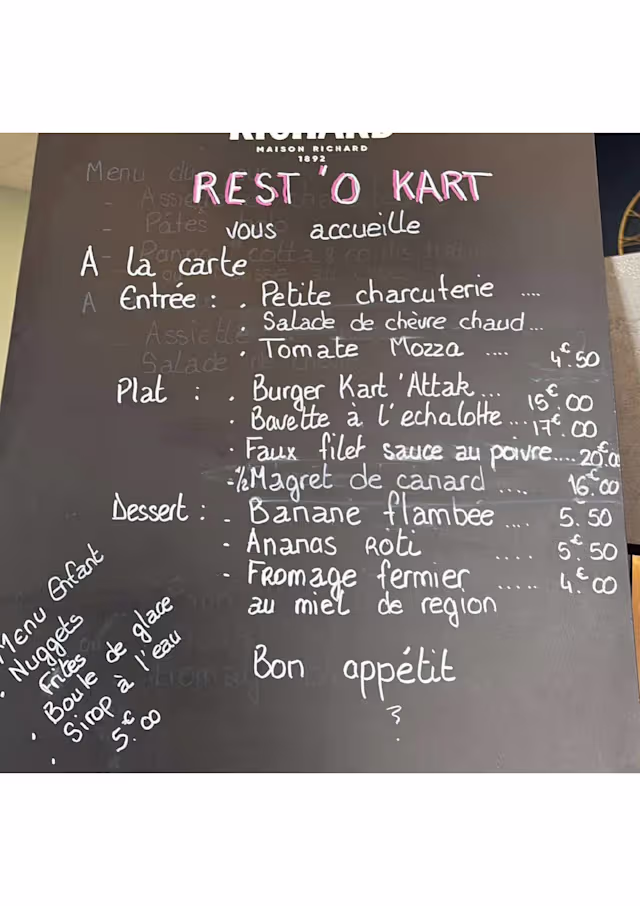 RICHARD
MAISON RICHARD
1892
REST 'O KART
vous accueille
A la carte
Entrée : . Petite charcuterie ....
. Salade de chèvre chaud...
. Tomate Mozza .... 4€.50
Plat : . Burger Kart 'Attak... 15€.00
. Bavette à l'echalotte... 17€.00
. Faux filet sauce au poivre.... 20€.0
- ½ Magret de canard .... 16€.00
Dessert : - Banane flambée .... 5.50
- Ananas Rôti ..... 5€.50
- Fromage fermier ..... 4€.00
au miel de region
Menu Enfant
. Nuggets
Frites
. Boule de glace
. Sirop à l'eau
5€.00
Bon appétit
Menu du
- Assie
- Pâtes
- Panna cotta
A
Assiette
Salade